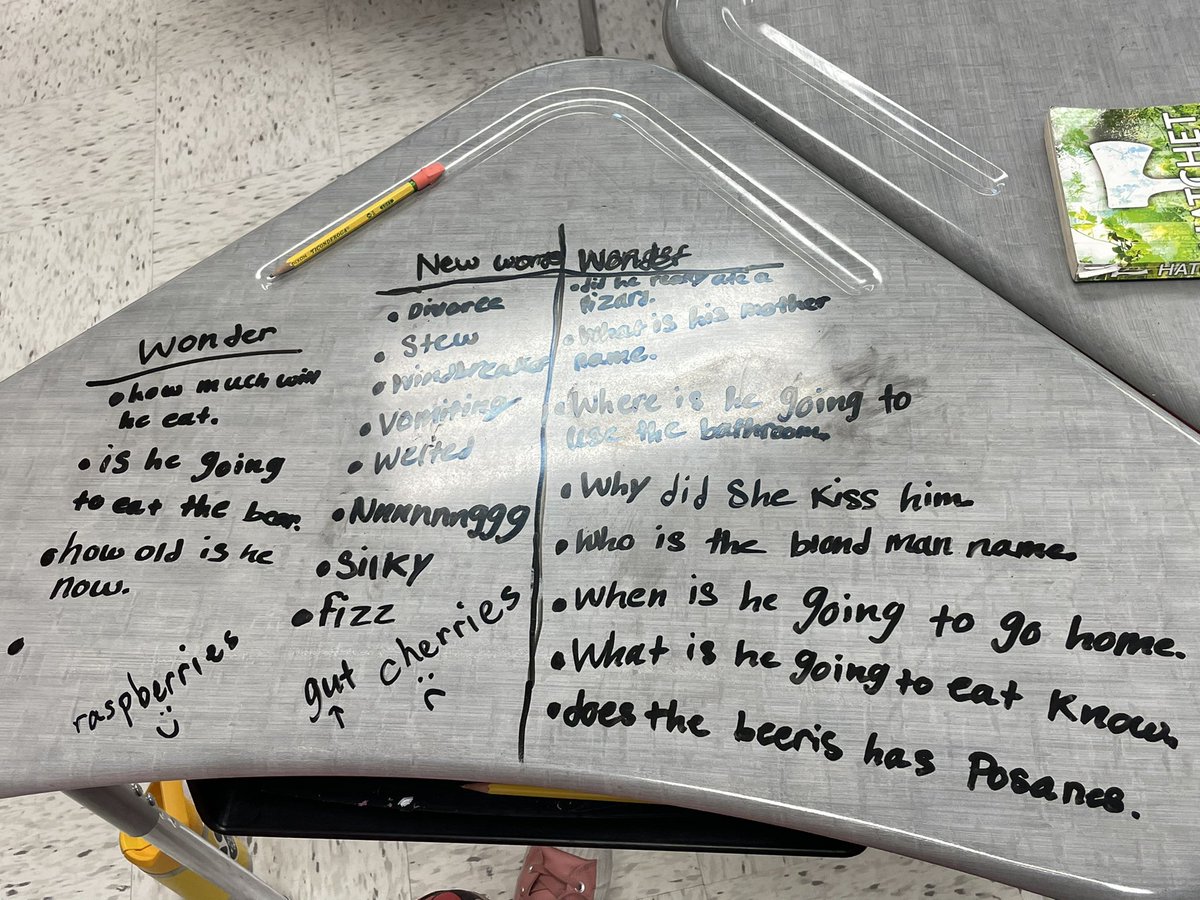 Wonder
• how much will
he eat.
• is he going
to eat the bear.
• how old is he
now.
•
raspberries
:)
New words
• Divorce
• Stew
• Windbreaker
• Vomiting
• Welted
• Nnnnnnnggg
• Silky
• fizz
gut cherries
↑ :(
Wonder
• did he really ate a
lizard.
• What is his mother
name.
• Where is he going to
use the bathroom.
• Why did She kiss him
• Who is the brand man name.
• When is he going to go home.
• What is he going to eat Know.
• does the beeris has Posanes.
DIXON TICONDEROGA
HATCHET
HAT